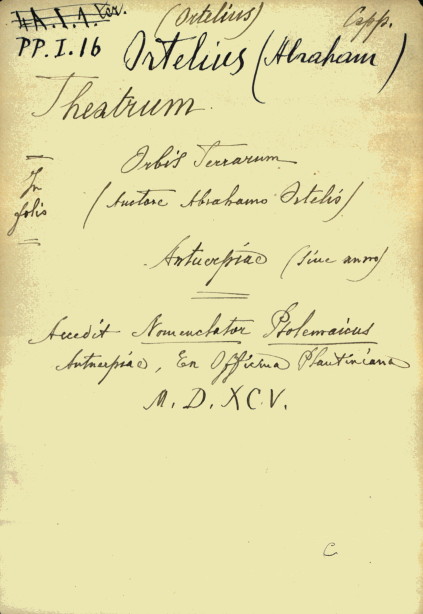 (Ortelius) Capp.
4 A.I.1. ter.
PP.I.16 Ortelius (Abraham)
Theatrum
Orbis Terrarum
In folio
(Auctore Abrahamo Ortelio)
Antuerpiae (sine anno)
Accedit Nomenclator Ptolemaicus
Antuerpiae, Ex Officina Plantiniana
M. D. XCV.
C